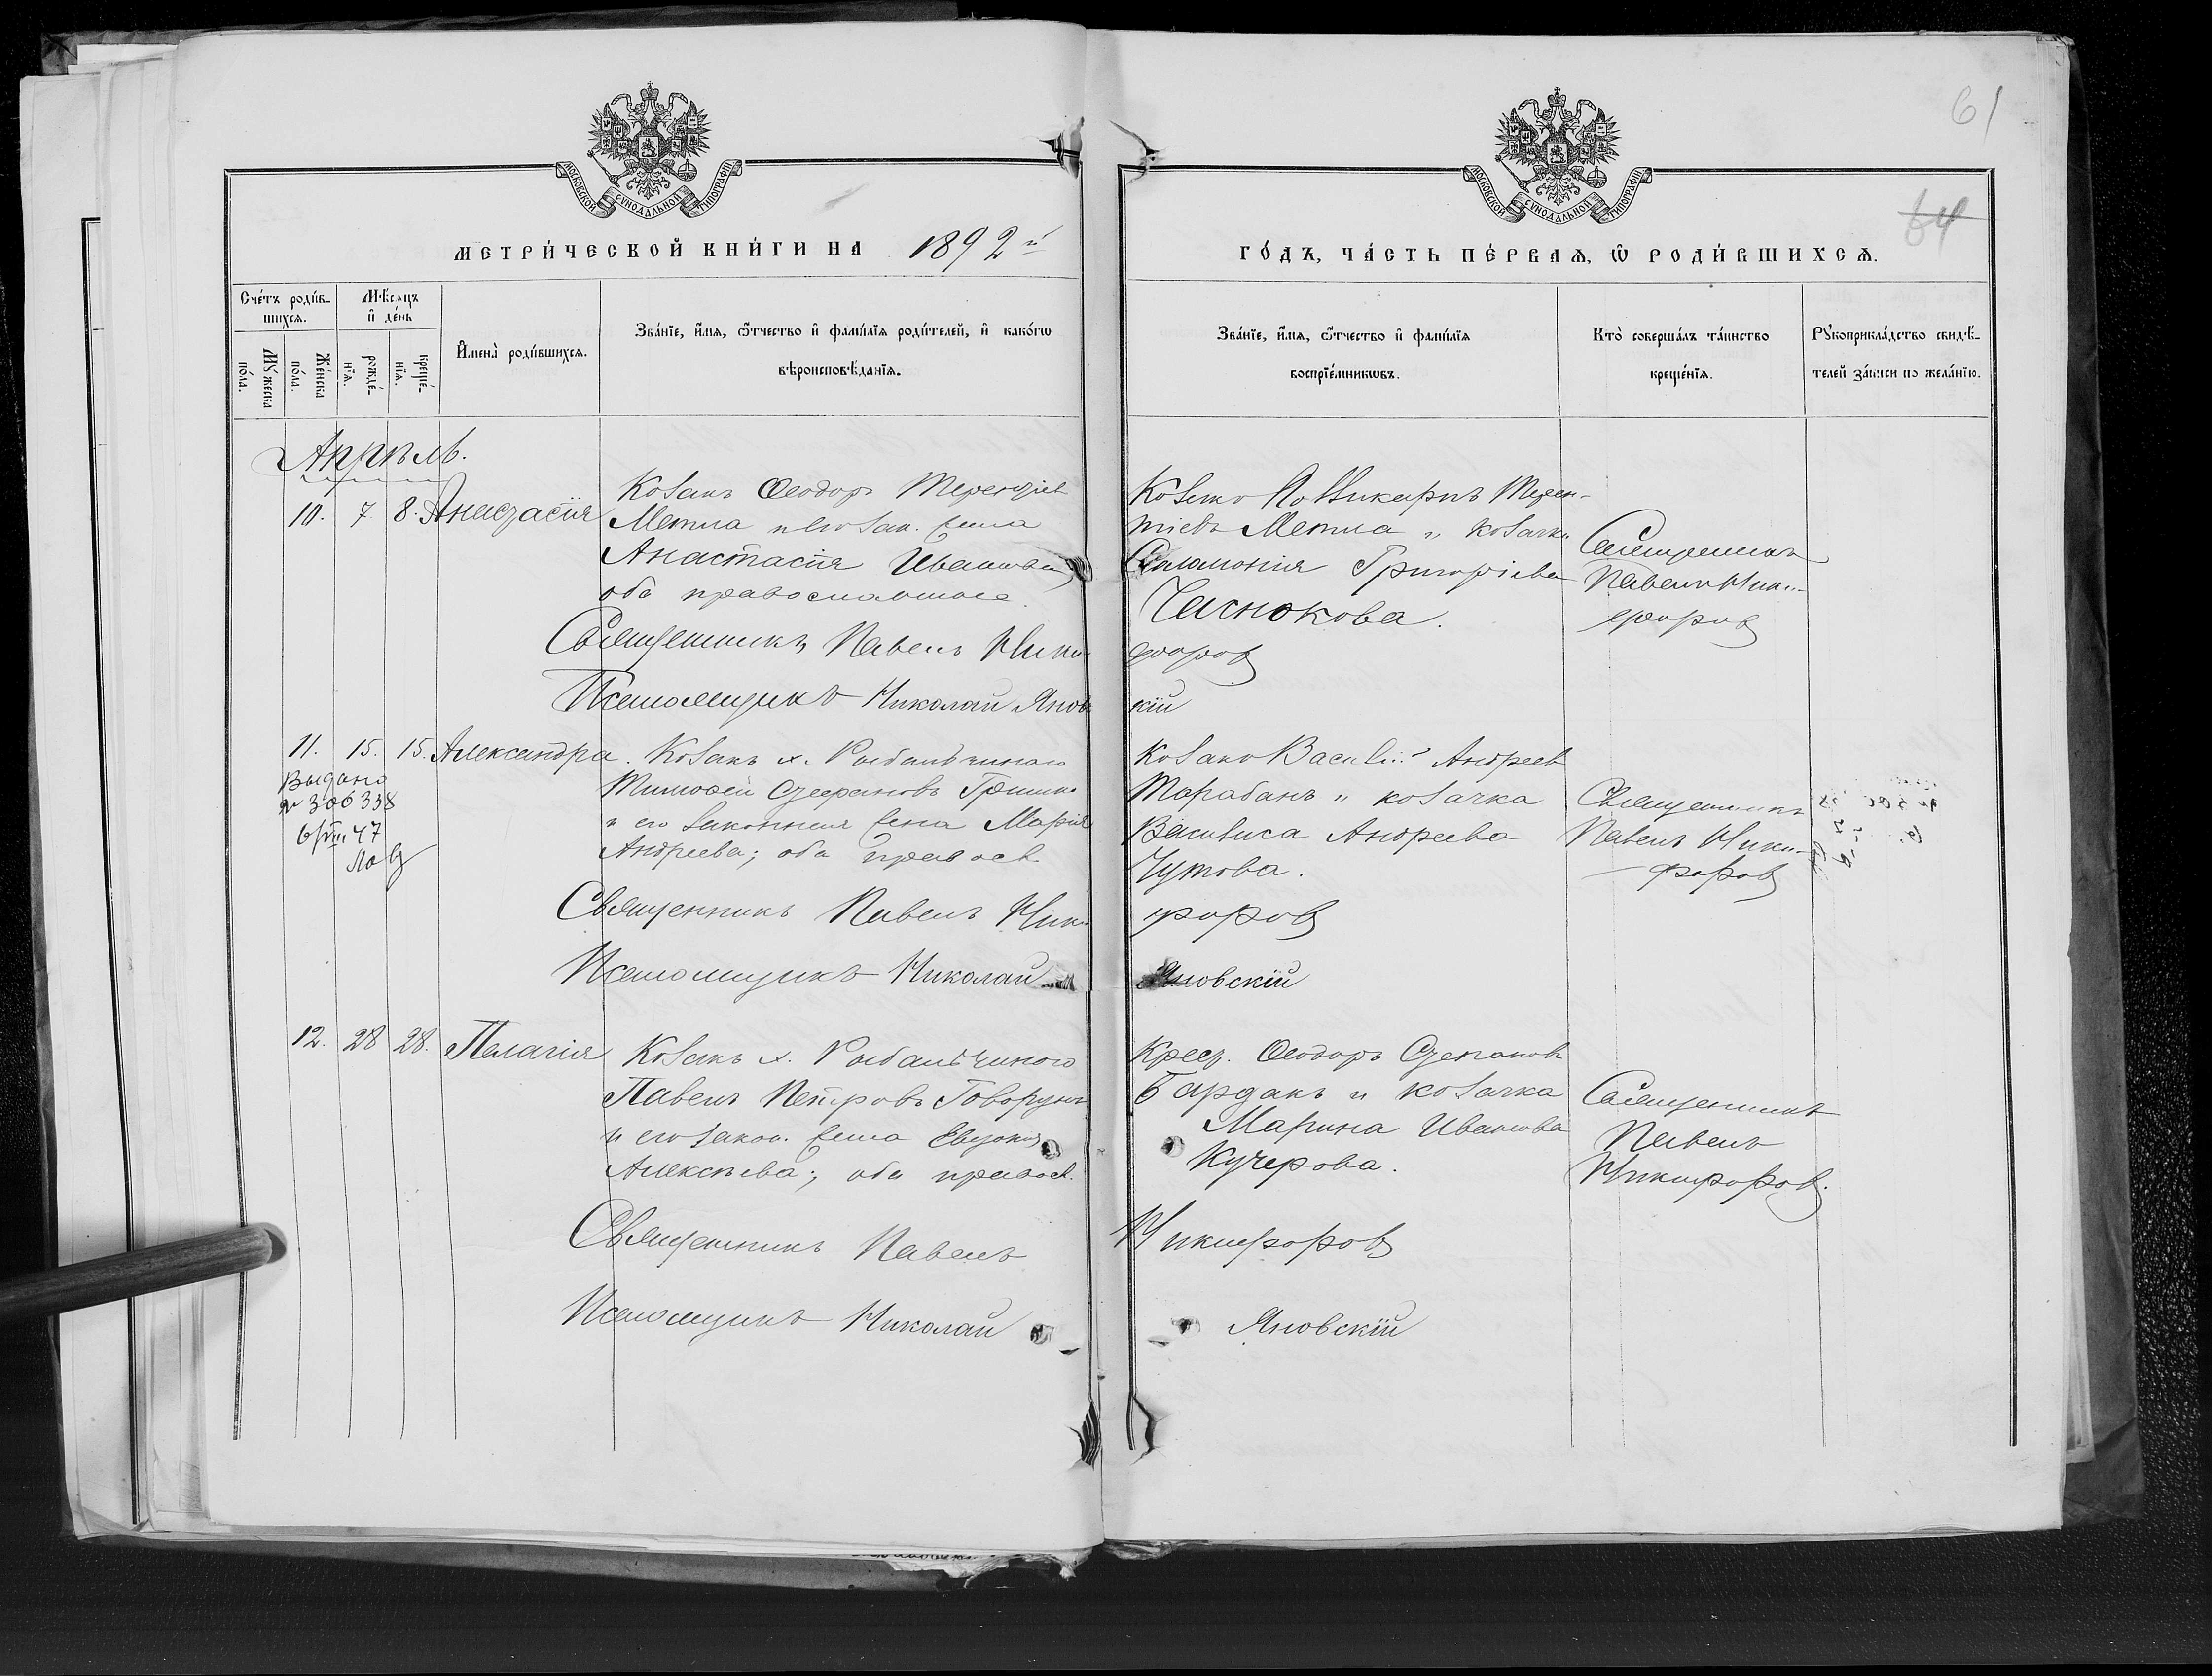 61
64
МОСКОВСКОЙ СѴНОДАЛЬНОЙ ТИПОГРАФІИ
МОСКОВСКОЙ СѴНОДАЛЬНОЙ ТИПОГРАФІИ
МЕТРИ́ЧЕСКОЙ КНИ́ГИ НА 1892й
ГО́ДЪ, ЧА́СТЬ ПЕ́РВАѦ, Ѡ҆ РОДИ́ВШИХСѦ.
Сче́тъ роди́в-
шихсѧ.
Мꙋжеска
по́ла.
Же́нска
по́ла.
Мѣ́сѧцъ
и҆ де́нь
рожде́-
нїѧ.
креще́-
нїѧ.
И҆мена̀ роди́вшихсѧ.
Зва́нїе, и҆́мѧ, ѻ҆́тчество и҆ фами́лїѧ роди́телей, и҆ како́гѡ
вѣроисповѣ́данїѧ.
Зва́нїе, и҆́мѧ, ѻ҆́тчество и҆ фами́лїѧ
воспрїе́мникѡвъ.
Кто̀ соверша́лъ та́инство
креще́нїѧ.
Рꙋкоприкла́дство свидѣ́-
телей за́писи по жела́нїю.
Апрѣль.
10. 7. 8. Анастасія
Козакъ Ѳеодоръ Терентіев
Метла и его зак. жена
Анастасія Иванова
оба православные.
Козакъ Поликарпъ Терен-
тіевъ Метла и козачка
Соломонія Григоріева
Чеснокова.
Священникъ
Павелъ Ники-
форов
Священникъ Павелъ Ники
форов
Псаломщикъ Николай Янов
кій
11. 15. 15. Александра.
Выдано
№ 306338
6/VIII 47
Козакъ х. Рыбальчиного
Тимоѳей Стефановъ Гришко
и его законная жена Марія
Андреева; оба правосл.
Козакъ Василій Андреев
Тарабанъ и козачка
Василиса Андреева
Чутова.
Священникъ
Павелъ Ники-
форов
Священникъ Павелъ Ники
форов
Псаломщикъ Николай
Яновскій
12. 28 28. Пелагія
Козакъ х. Рыбальчиного
Павелъ Петровъ Говорунъ
и его закон. жена Евдокія
Алексѣева; оба правосл.
Крест. Ѳеодоръ Степанов
Бардакъ и козачка
Марина Иванова
Кучерова.
Священникъ
Павелъ
Никифоров.
Священникъ Павелъ
Никифоров
Псаломщикъ Николай
Яновскій